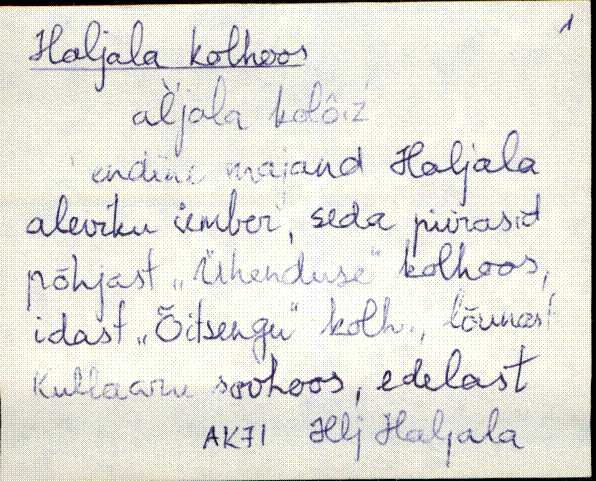 1
Haljala kolhoos
aljala kolõ.z
endine majand Haljala
aleviku ümber, seda piirasid
põhjast "Ühenduse" kolhoos,
idast "Õitsengu" kolh., lõunast
Kullaaru sovhoos, edelast
AK71 Hlj Haljala